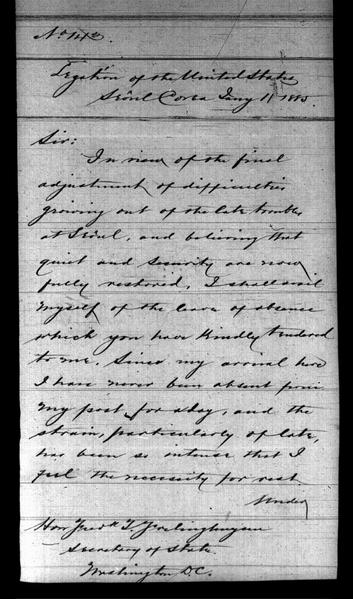 Legation of the United States
Seoul Corea Jany 11 1885.
Sir:
In view of the final
adjustment of difficulties
growing out of the late troubles
at Seoul, and believing that
quiet and security are now
fully restored, I shall avail
myself of the leave of absence
which you have kindly tendered
to me. Since my arrival here
I have never been absent from
my post for a day, and the
strain, particularly of late,
has been so intense that I
feel the necessity for rest.
Under
Hon Fredk T. Frelinghuysen
Secretary of State
Washington D.C.